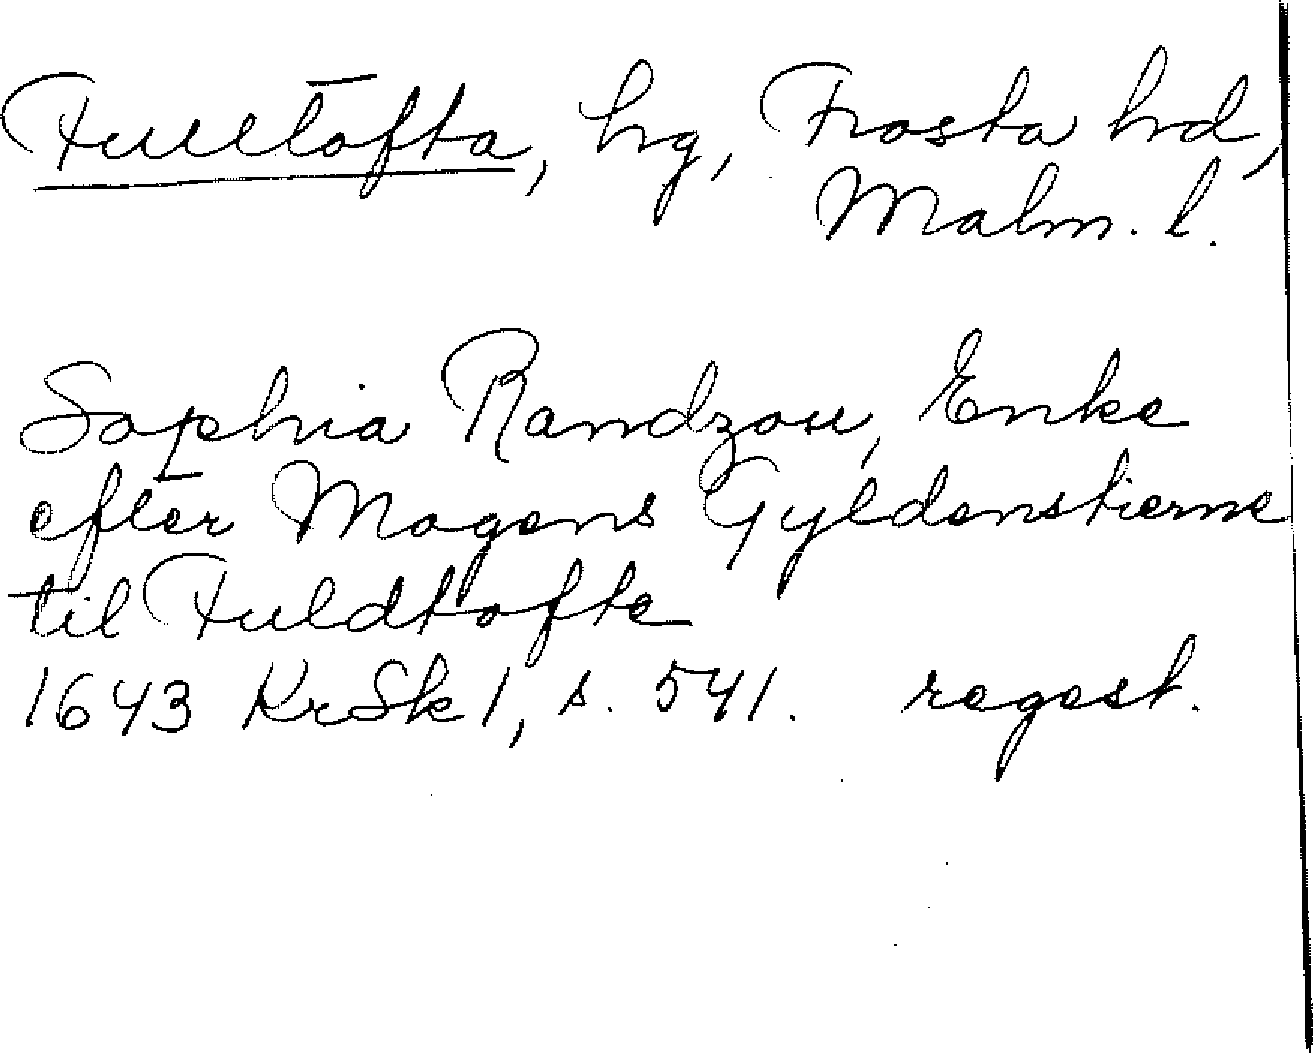 Fulltofta, hg, Frosta hd,
Malm. l.
Sophia Randzou, Enke
efter Mogens Gyldenstierne
til Fuldtofte
1643 KrSk 1, s. 541. regest.